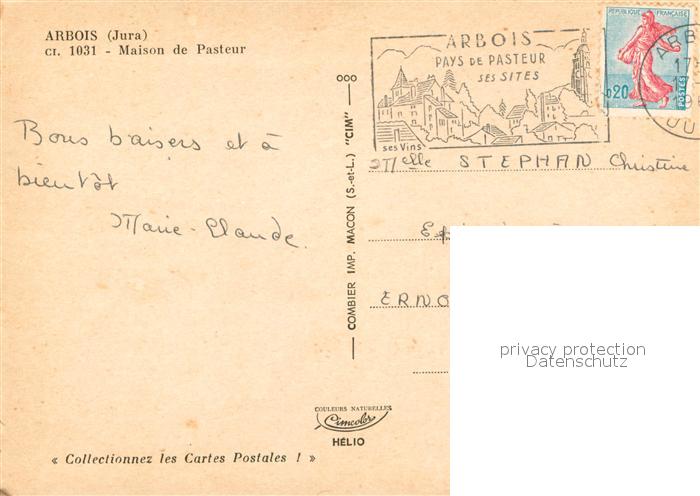 ARBOIS (Jura)
CI. 1031 - Maison de Pasteur
Bons baisers et à
bientôt
Marie-Claude.
COMBIER IMP. MACON (S.-et-L.) "CIM"
ooo
COULEURS NATURELLES
Cimcolor
HÉLIO
« Collectionnez les Cartes Postales ! »
ARBOIS
PAYS DE PASTEUR
SES SITES
ses Vins
REPUBLIQUE FRANÇAISE
0,20
POSTES
ARB
17
Melle STEPHAN Christine
ERNO
privacy protection
Datenschutz